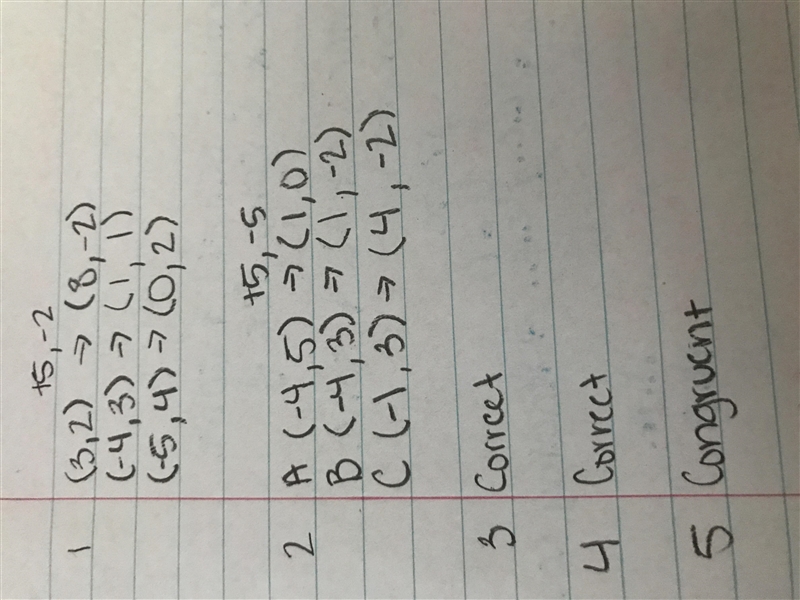 +5, -2
1 (3,2) → (8,-2)
(-4,3) → (1, 1)
(-5,4) → (0,2)
+5, -5
2 A (-4,5) → (1,0)
B (-4,3) → (1, -2)
C (-1,3) → (4, -2)
3 Correct
4 Correct
5 Congruent